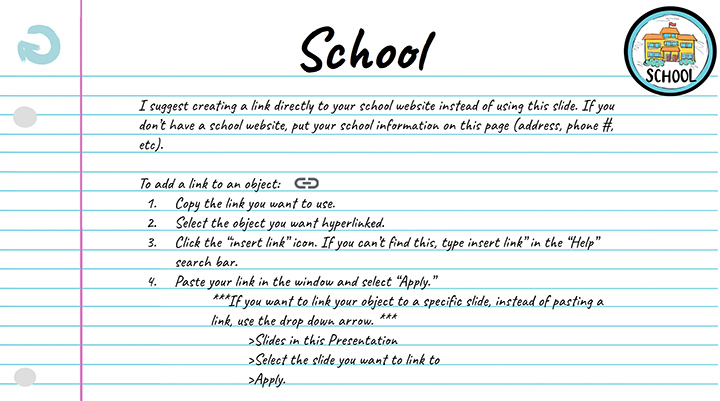 School
SCHOOL
I suggest creating a link directly to your school website instead of using this slide. If you
don't have a school website, put your school information on this page (address, phone #,
etc).
To add a link to an object:
1. Copy the link you want to use.
2. Select the object you want hyperlinked.
3. Click the "insert link" icon. If you can't find this, type insert link" in the "Help"
search bar.
4. Paste your link in the window and select "Apply."
***If you want to link your object to a specific slide, instead of pasting a
link, use the drop down arrow. ***
>Slides in this Presentation
>Select the slide you want to link to
>Apply.